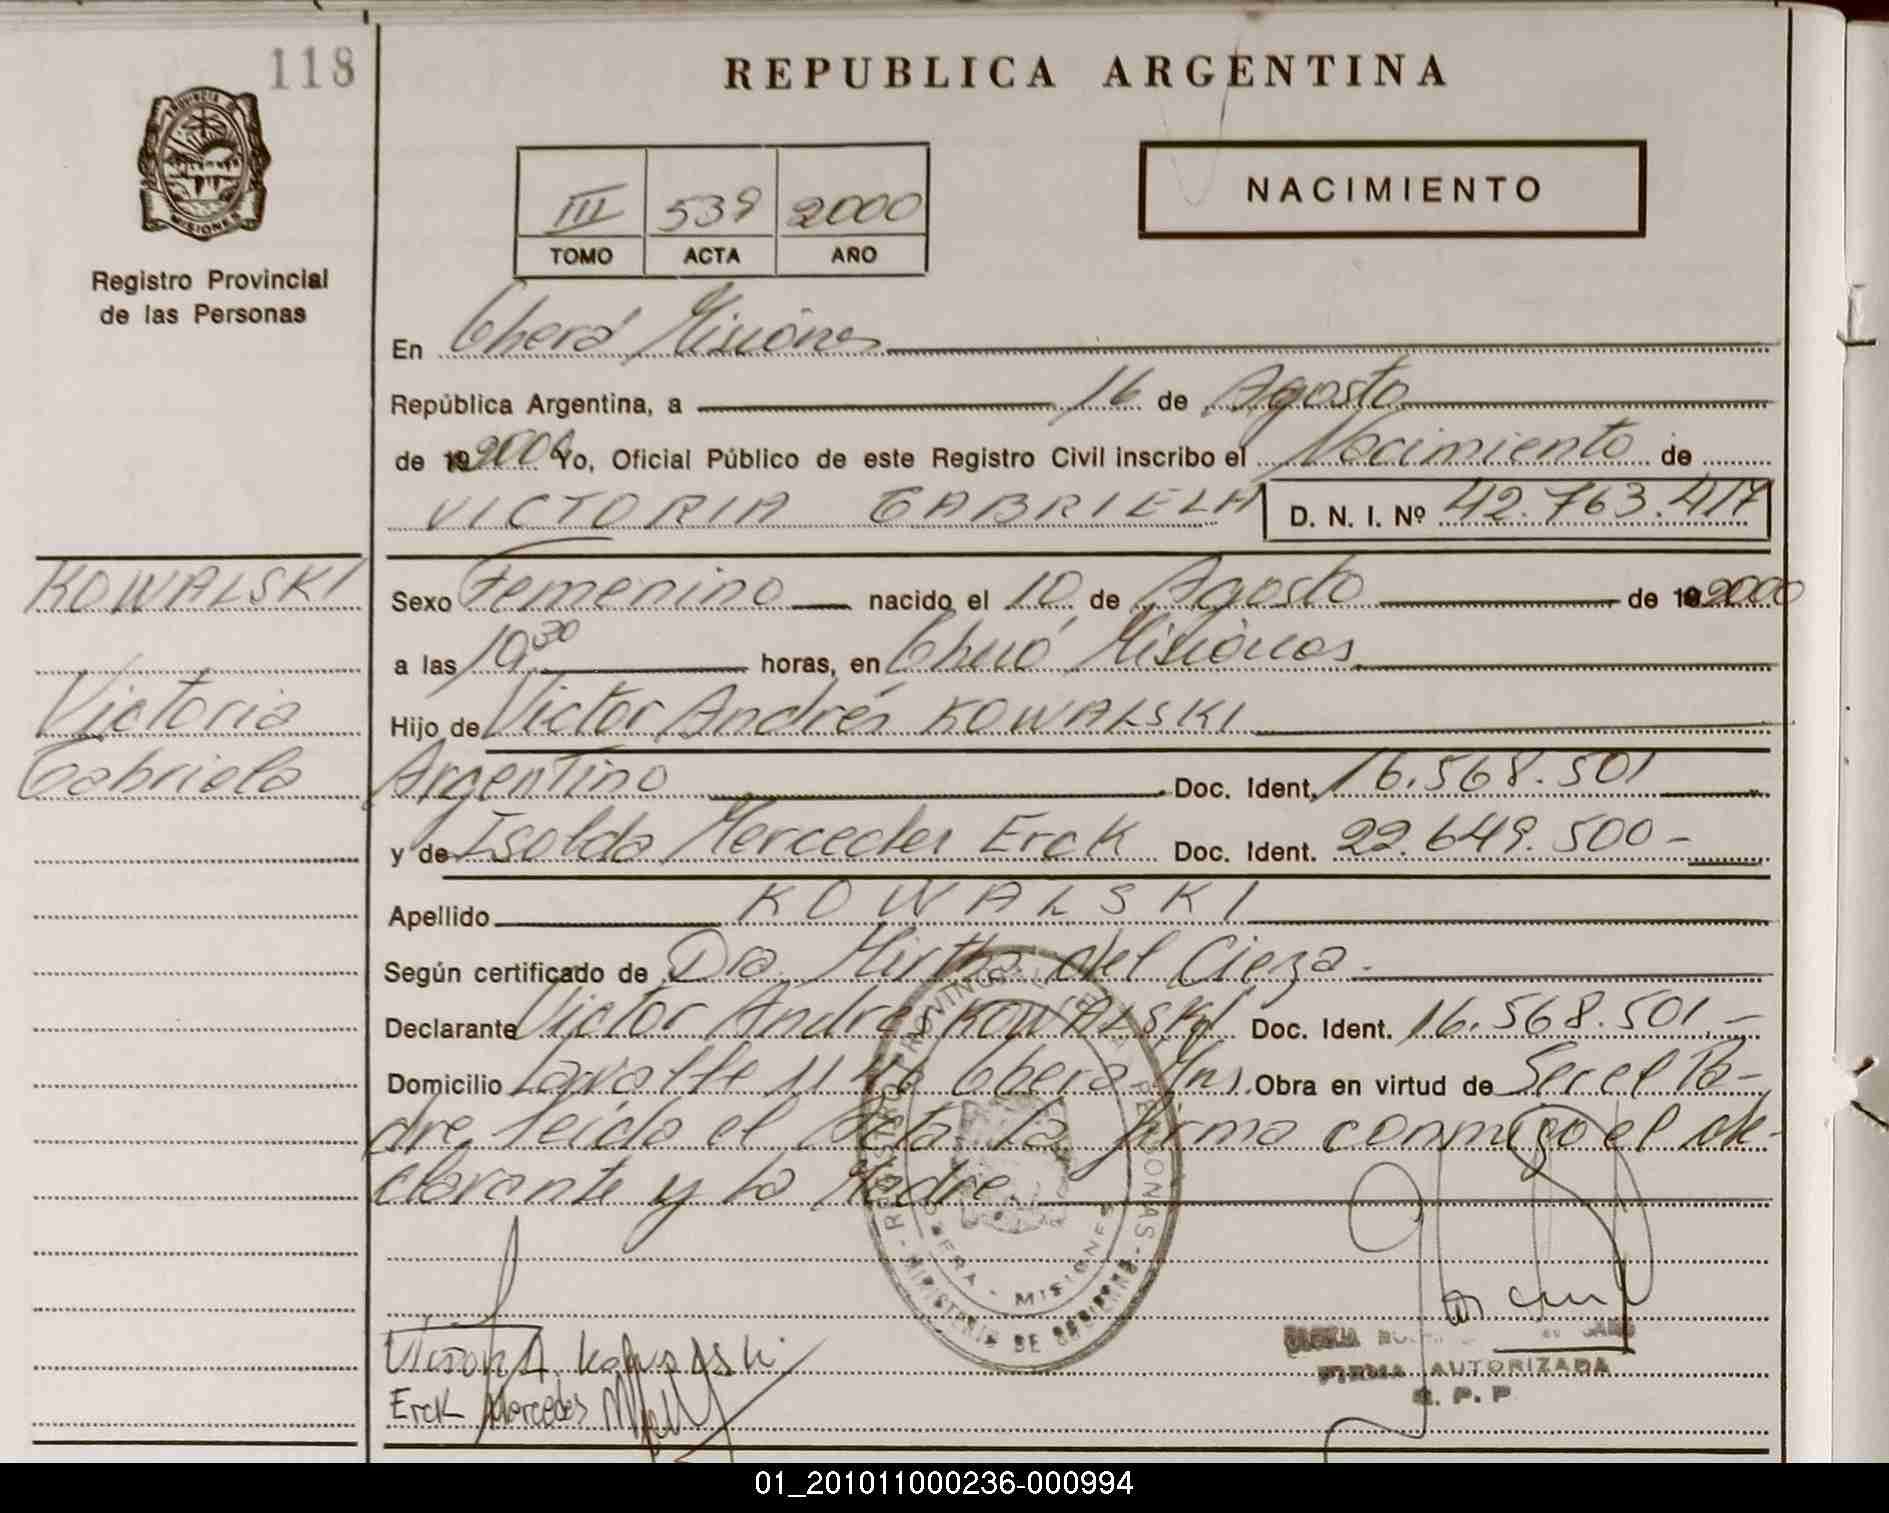 118
REPUBLICA ARGENTINA
PROVINCIA D
MISIONES
Registro Provincial
de las Personas
III 539 2000
TOMO ACTA AÑO
NACIMIENTO
En Oberá Misiones
República Argentina, a 16 de Agosto
de 192000 Yo, Oficial Público de este Registro Civil inscribo el Nacimiento de
VICTORIA GABRIELA D. N. I. Nº 42.763.417
KOWALSKI
Victoria
Gabriela
Sexo Femenino nacido el 10 de Agosto de 192000
a las 19 30 horas, en Oberá Misiones
Hijo de Victor Andrés KOWALSKI
Argentino Doc. Ident. 16.568.501
y de Isolda Mercedes Erck Doc. Ident. 22.649.500-
Apellido KOWALSKI
Según certificado de Dra. Mirtha del Cieza.
Declarante Victor Andrés KOWALSKI Doc. Ident. 16.568.501.-
Domicilio Lavalle Oberá Mns. Obra en virtud de Ser el Pa-
dre, leída el Acta la firma conmigo el de-
clarante y la Madre
REGISTRO PROVINCIAL DE LAS PERSONAS
OBERA - MISIONES
MINISTERIO DE GOBIERNO
Victor A. Kowalski
Erck Mercedes
FIRMA AUTORIZADA
R. P. P
01_201011000236-000994